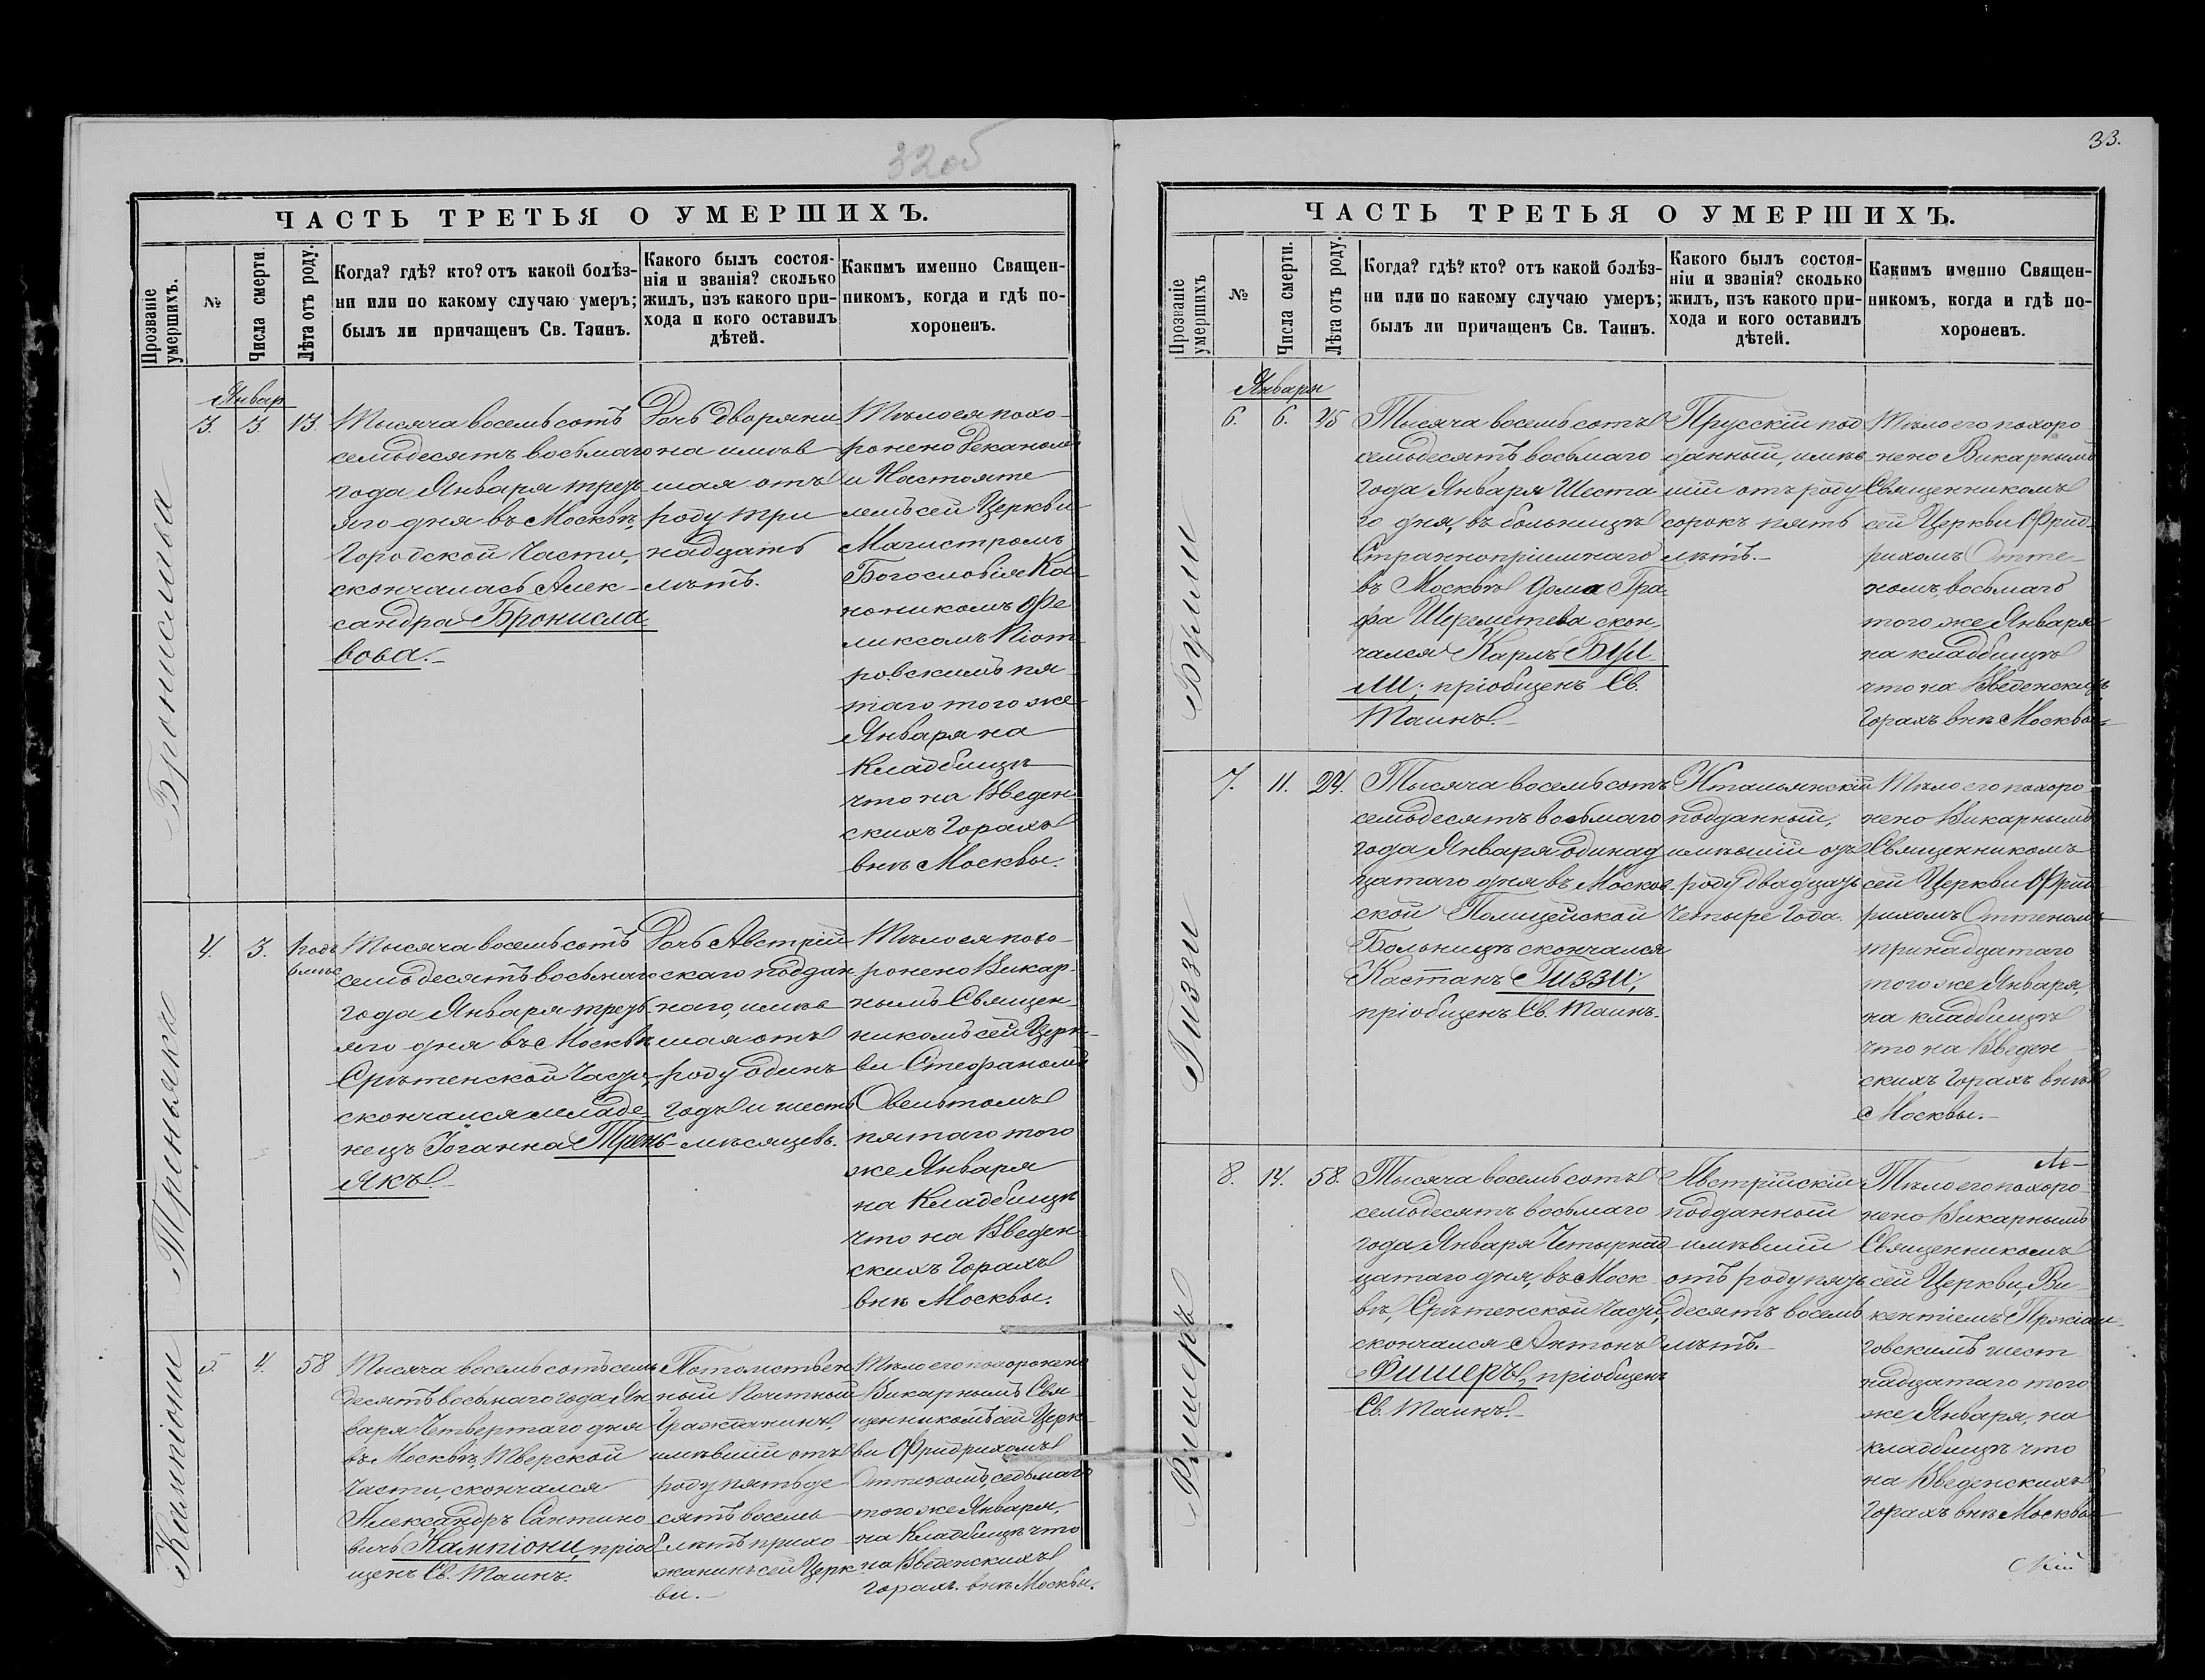 32об
ЧАСТЬ ТРЕТЬЯ О УМЕРШИХЪ.
Прозваніе умершихъ.
№
Числа смерти.
Лѣта отъ роду.
Когда? гдѣ? кто? отъ какой болѣз-
ни или по какому случаю умеръ;
былъ ли причащенъ Св. Таинъ.
Какого былъ состоя-
нія и званія? сколько
жилъ, изъ какого при-
хода и кого оставилъ
дѣтей.
Какимъ именно Священ-
никомъ, когда и гдѣ по-
хороненъ.
Январ
Брониславва
3.
3.
13.
Тысяча восемь сотъ
семьдесятъ восьмаго
года Января треть
яго дня въ Москвѣ,
Городской Части,
скончалась Алек-
сандра Бронисла
вова.
Дочь дворяни
на имѣв
шая отъ
роду три
надцать
лѣтъ.
Тѣло ея похо-
ронено Деканомъ
и Настояте
лемъ сей Церкви
Магистромъ
Богословія Ка
ноникомъ Фе
ликсомъ Піот
ровскимъ пя
таго того же
Января на
Кладбищѣ
что на Введен
скихъ Горахъ
внѣ Москвы.
Треньяка
4.
3.
1 годъ
6 мѣс
Тысяча восемь сотъ
семьдесятъ восьмаго
года Января треть
яго дня въ Москвѣ
Срѣтенской Части,
скончался младе-
нецъ Іоганна Трень-
якъ.
Дочь Австрій
скаго поддан
наго, имѣв
шая отъ
роду одинъ
годъ и шесть
мѣсяцевъ.
Тѣло ея похо-
ронено Викар-
нымъ Священ-
никомъ сей Церк-
ви Стефаномъ
Овельтомъ
пятаго того
же Января
на Кладбищѣ
что на Введен
скихъ Горахъ
внѣ Москвы.
Кампіони
5.
4.
58
Тысяча восемь сотъ семь
десятъ восьмаго года Ян
варя Четвертаго дня
въ Москвѣ, Тверской
Части, скончался
Александръ Сантино
вичъ Кампіони, пріоб
щенъ Св. Таинъ.
Потомствен
ный Почетный
Гражданинъ,
имѣвшій отъ
роду пятьде
сятъ восемь
лѣтъ прихо
жанинъ сей Церк
ви.
Тѣло его похоронено
Викарнымъ Свя
щенникомъ сей Церк-
ви Фридрихомъ
Оттеномъ, седьмаго
того же Января,
на Кладбищѣ что
на Введенскихъ
горахъ внѣ Москвы.
33.
ЧАСТЬ ТРЕТЬЯ О УМЕРШИХЪ.
Прозваніе умершихъ
№
Числа смерти.
Лѣта отъ роду.
Когда? гдѣ? кто? отъ какой болѣз-
ни или по какому случаю умеръ;
былъ ли причащенъ Св. Таинъ.
Какого былъ состоя-
нія и званія? сколько
жилъ, изъ какого при-
хода и кого оставилъ
дѣтей.
Какимъ именно Священ-
никомъ, когда и гдѣ по-
хороненъ.
Января
6.
6.
45
Тысяча восемь сотъ
семьдесятъ восьмаго
года Января Шеста
го дня, въ больницѣ
Страннопріимнаго
въ Москвѣ дома Гра-
фа Шереметева скон
чался Карлъ
пріобщенъ Св.
Таинъ.
Прусскій под
данный, имѣв
шій отъ роду
сорокъ пять
лѣтъ.
Тѣло его похоро
нено Викарнымъ
Священникомъ
сей Церкви Фрид-
рихомъ Отте-
номъ, восьмаго
того же Января
на кладбищѣ
что на Введенскихъ
Горахъ внѣ Москвы
Гиззи
7.
11.
24.
Тысяча восемь сотъ
семьдесятъ восьмаго
года Января одинад
цатаго дня въ Москов
ской Полицейской
Больницѣ скончался
Кастанъ Гиззи,
пріобщенъ Св. Таинъ.
Итальянскій
подданный,
имѣвшій отъ
роду двадцать
четыре года.
Тѣло его похоро
нено Викарнымъ
Священникомъ
сей Церкви Фрид
рихомъ Оттеномъ
тринадцатаго
того же Января,
на кладбищѣ
что на Введен
скихъ Горахъ внѣ
Москвы.
Фишеръ
8.
14.
58.
Тысяча восемь сотъ
семьдесятъ восьмаго
года Января Четырнад
цатаго дня, въ Моск
вѣ, Срѣтенской Части,
скончался Антонъ
Фишеръ, пріобщенъ
Св. Таинъ.
Австрійскій
подданный
имѣвшій
отъ роду пять
десятъ восемь
лѣтъ.
Тѣло его похоро
нено Викарнымъ
Священникомъ
сей Церкви, Ви-
кентіемъ
говскимъ шест
надцатаго того
же Января, на
кладбищѣ что
на Введенскихъ
Горахъ внѣ Москвы